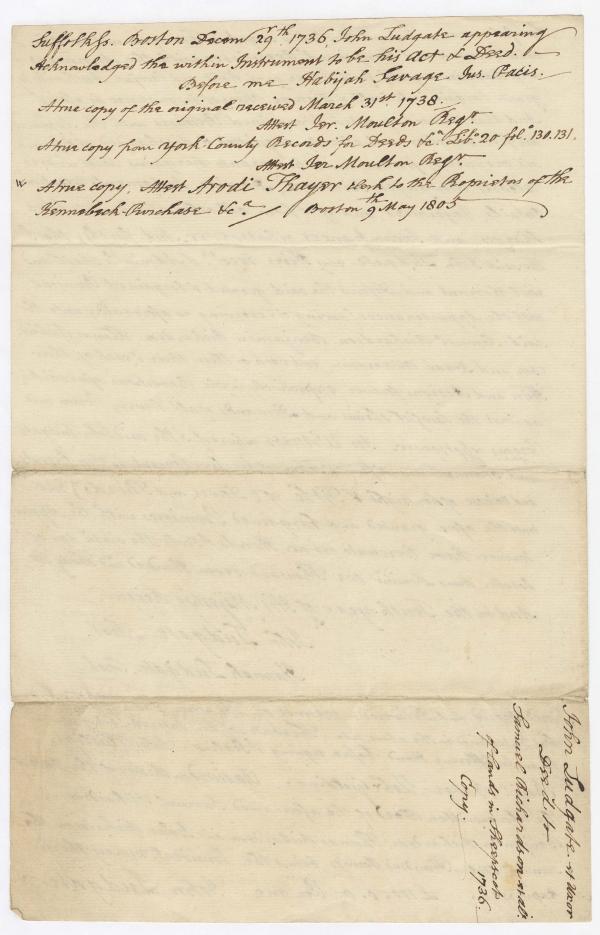 Suffolk ss. Boston Decemʳ 29ᵗʰ. 1736. John Ludgate appearing
Acknowledged the within Instrument to be his Act & Deed.
Before me Habijah Savage Jus. Pacis.
A true copy of the original received March 31ˢᵗ 1738.
Attest Jer. Moulton Regʳ.
A true copy from York County Records for Deeds &cᵃ Libº 20 folº 130.131.
Attest Jer Moulton Regʳ.
A true copy, Attest Arodi Thayer Clerk to the Proprietors of the
Kennebeck Purchase &cᵃ. / Boston 9ᵗʰ May 1805
John Ludgate et Uxor
Deed to
Samuel Richardson et al:
of Lands in Sheepscot
1736.
Copy.